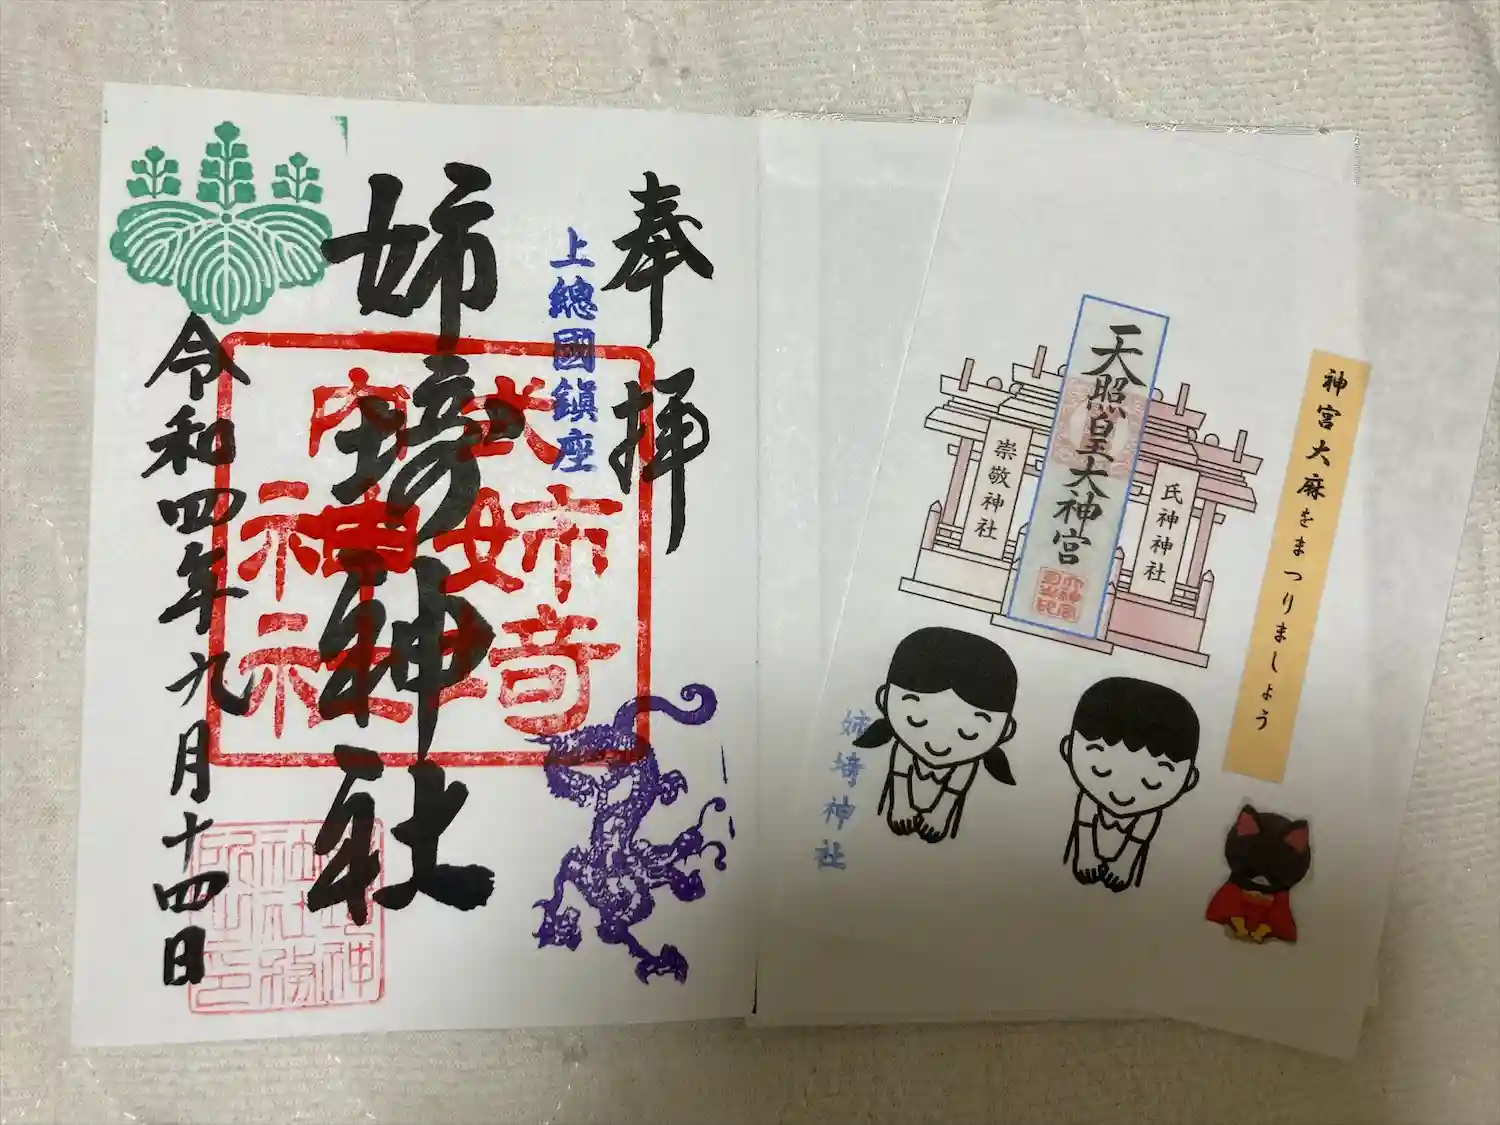 奉拝
上總國鎮座
姉埼神社
式内
姉埼
神社
令和四年九月十四日
神宮大麻をまつりましょう
氏神神社
天照皇大神宮
崇敬神社
姉埼神社